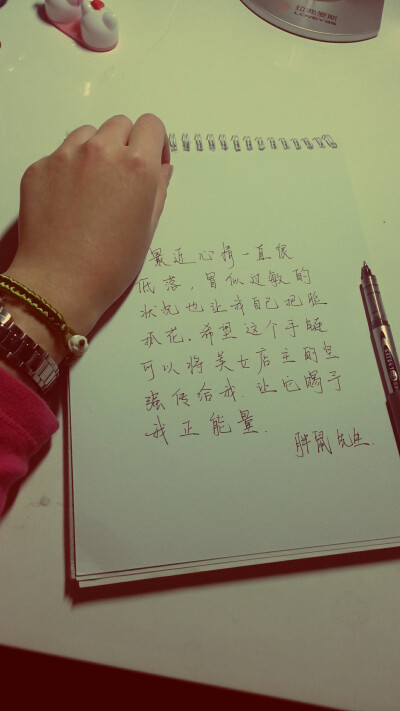 最近心情一直很
低落,冒似过敏的
状况也让我自己把脸
抓花.希望这个手链
可以将美女店主的坚
强传给我.让它赐予
我正能量.
胖鼠先生.